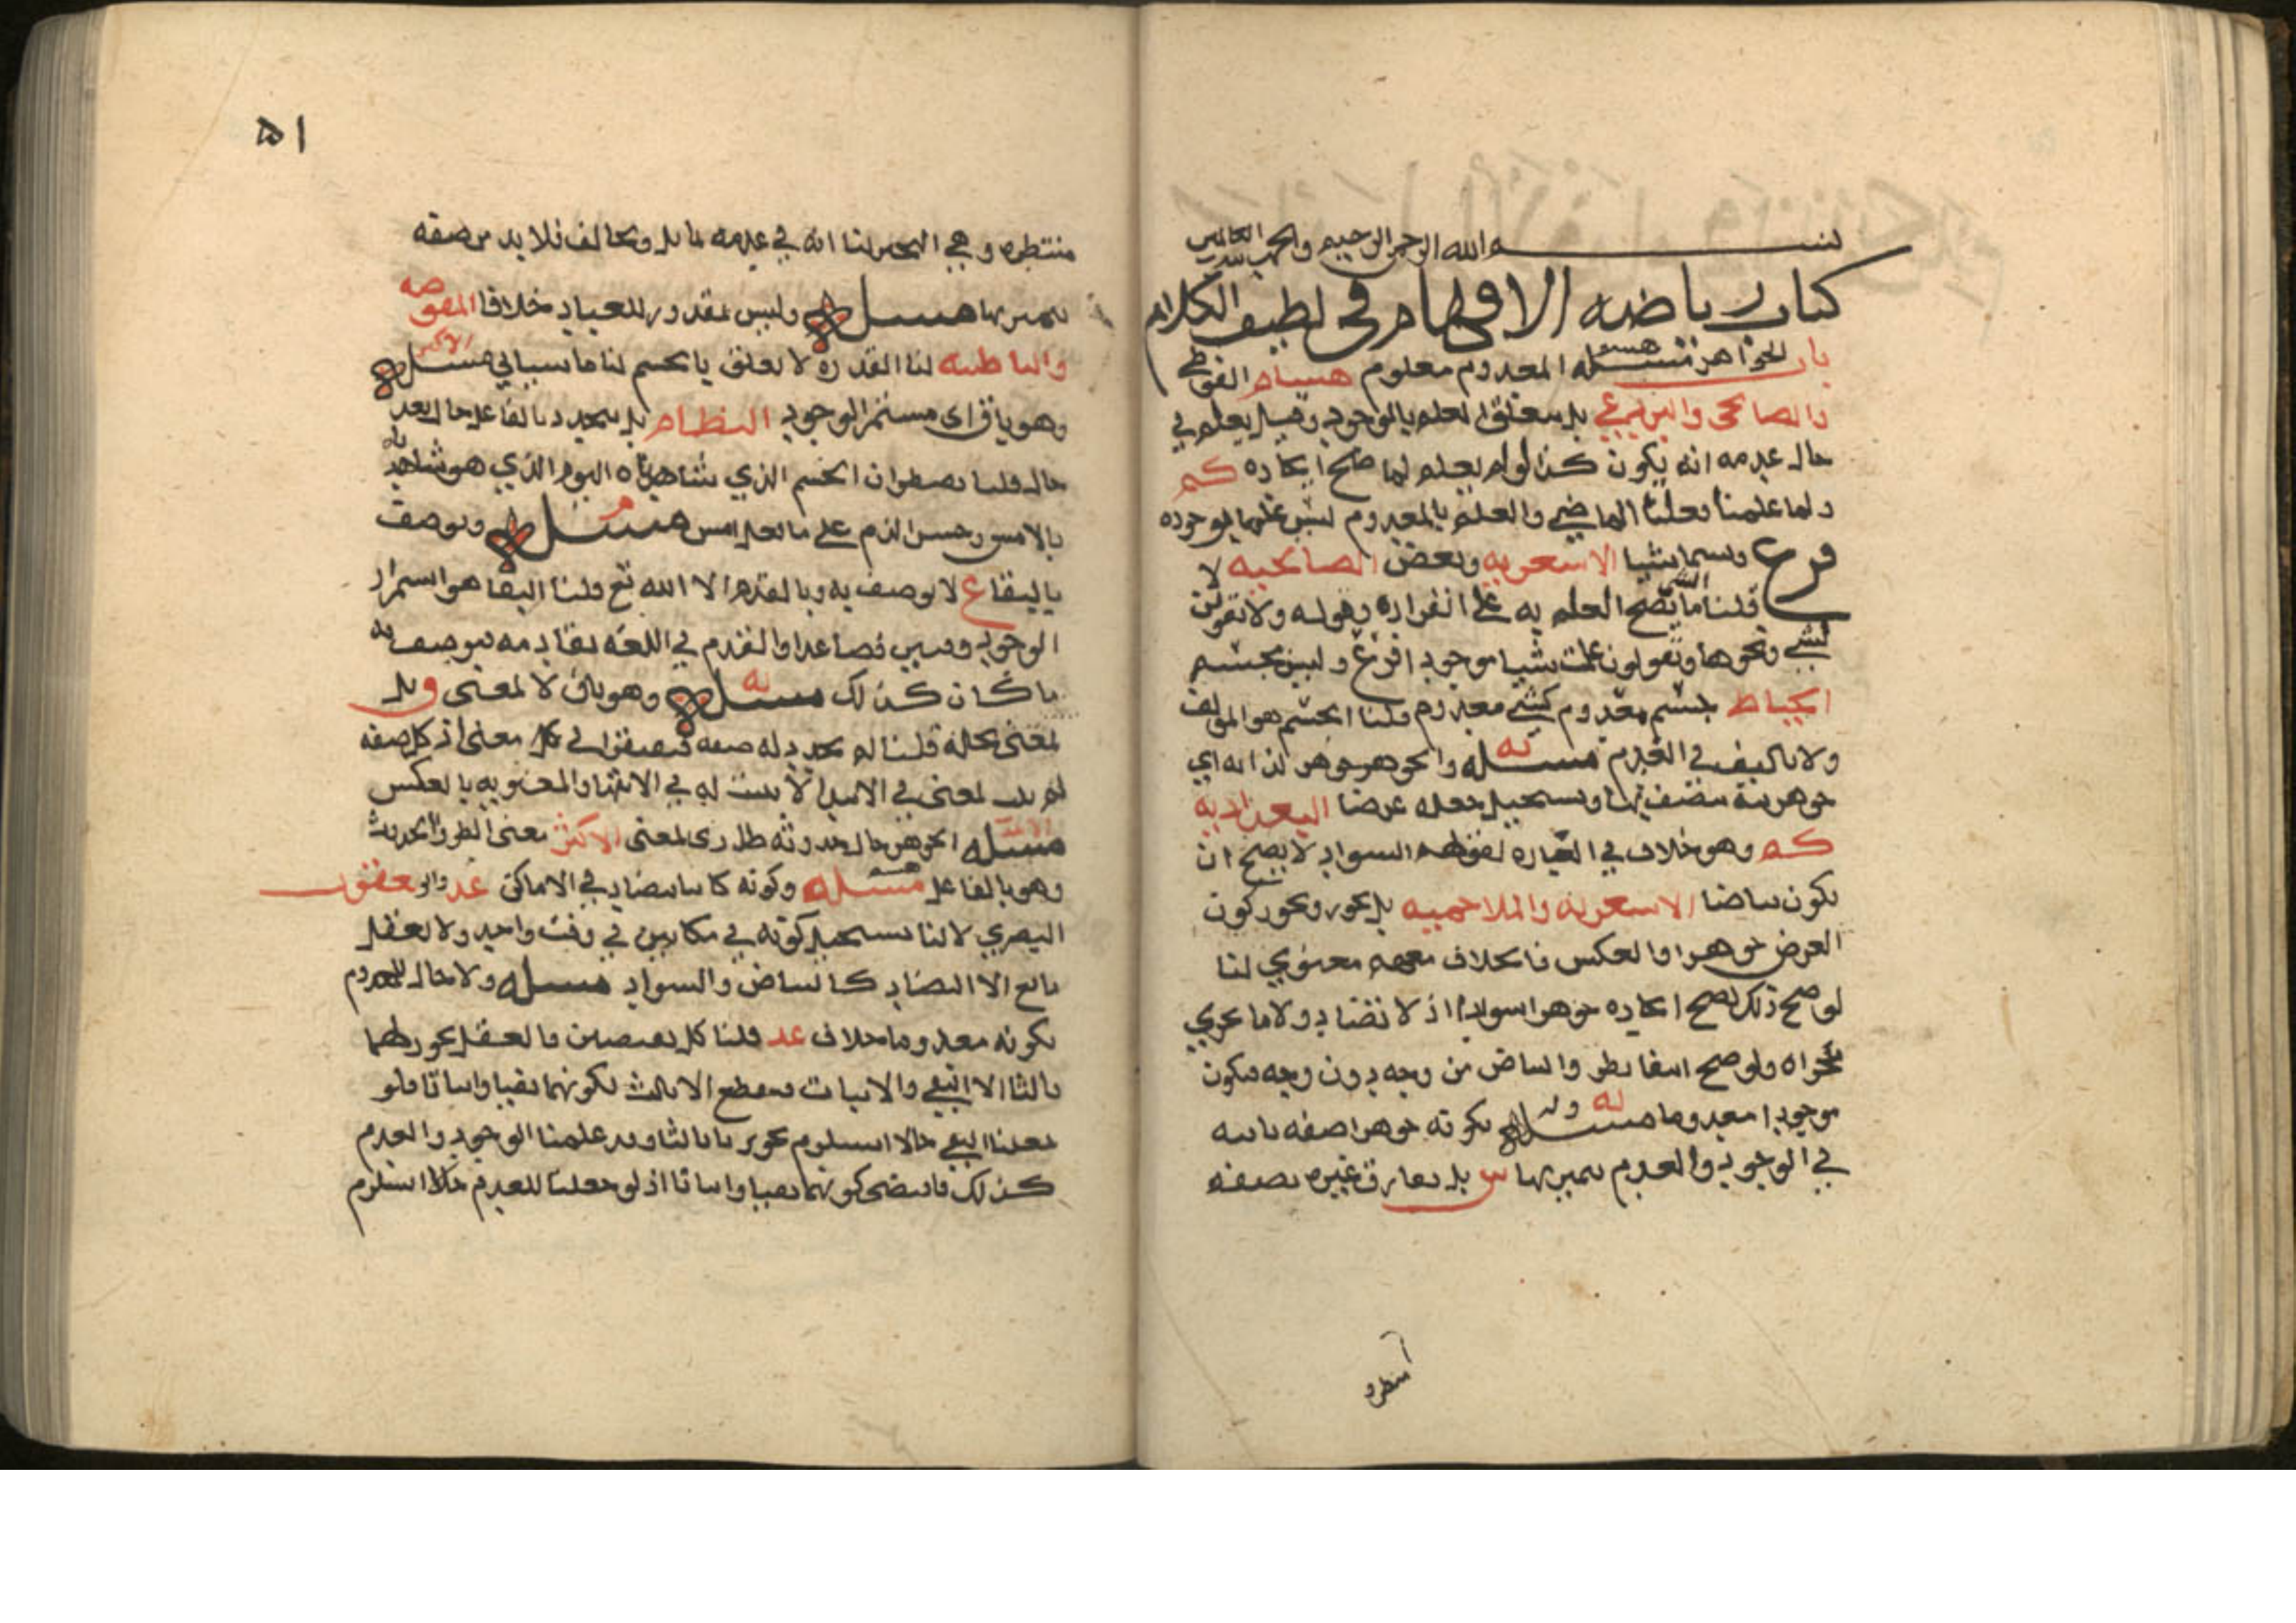 بسم الله الرحمن الرحيم والحمد لله رب العالمين
كتاب رياضه الافهام في لطيف الكلام
باب الجواهر مسئله المعدوم معلوم هشام الفوطي
والصالحي والبرذعي بل يتعلق العلم بالوجود وقيل يعلم في
حال عدمه انه يكون كذا لو لم يعلم لما صح ايجاده كم
ولما علمنا فعلنا الماضي والعلم بالمعدوم ليس علما بموجوده
فرع ويسما شيا الاشعريه وبعض الصالحيه لا
قلنا الشي ما يصح العلم به على انفراده وقوله ولا تقولن
لشي ونحوها ويقولون علمت شيا موجودا فرع وليس بجسم
الخياط جسم معدوم كشي معدوم قلنا الجسم هو المؤلف
ولا تاليف في العدم مسئله والجوهر جوهر لذاته اي
جوهريته مقتضيها ويستحيل جعله عرضا البغداديه
كم وهو خلاف في العباره لقولهم السواد لا يصح ان
يكون بياضا الاشعريه والملاحميه بل يجوز ويجوز كون
العرض جوهرا والعكس فالخلاف معهم معنوي لنا
لو صح ذلك لصح ايجاده جوهرا سوادا اذ لا تضاد ولا ما يجري
مجراه ولو صح انتفا بطرو البياض من وجه دون وجه فيكون
موجودا معدوما مسئله وله بكونه جوهرا صفه ثابته
في الوجود والعدم يتميز بها س بل يفارق غيره بصفه
منتظره
منتظره وهي التحيز لنا انه في عدمه مماثل ومخالف فلا بد من صفه
يتميز بها مسئله وليس بمقدور للعباد خلافا المفوضه
والباطنيه لنا القدره لا تعلق بالجسم لنا ما سياتي مسئله الاكثر
وهو باق اى مستمر الوجود النظام بل يتجدد بالفاعل حالا بعد
حال قلنا نضطر ان الجسم الذي شاهدناه اليوم الذي هو شاهدناه
بالامس وحسن الذم على ما فعل امس مسئله ويوصف
بالبقا ع لا يوصف به وبالقدم الا الله تع قلنا البقا هو استمرار
الوجود وقتين فصاعدا والقدم في اللغه تقادمه فيوصف به
ما كان كذلك مسئله وهو باق لا لمعنى وقيل
لمعنى يحله قلنا لم يتجدد له صفه فيفتقر الى معنى اذ كل صفه
لم تثبت لمعنى في الابتدا لا يثبت له في الانتها والمعنويه بالعكس
مسئله الجوهر حال حدوثه طارى لمعنى الاكثر معنى الطرو الحدوث
وهو بالفاعل مسئله وكونه كاينا يتضاد في الاماكن عد وابو يعقوب
البصري لا لنا يستحيل كونه في مكانين في وقت واحد ولا يعقل
مانع الا التضاد كالبياض والسواد مسئله ولا حال للمعدوم
بكونه معدوما خلاف عد قلنا كل نقيضين فالعقل يجوز لهما
ثالثا الا النفي والاثبات فيقطع الا ثالث لكونهما نفيا واثباتا فلو
جعلنا النفي حالا استلزم تجويز ثالثا وقد علمنا الوجود والعدم
كذلك فاقتضى كونهما نفيا واثباتا اذ لو جعلنا للعدم حالا استلزم
٥١